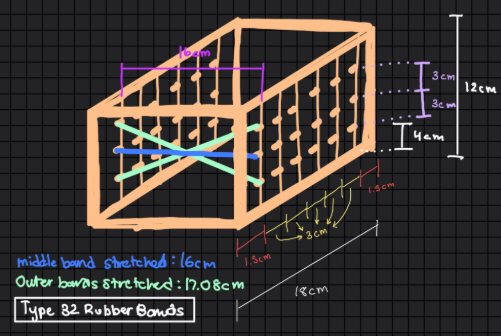 16cm
3cm
3cm
12cm
4cm
1.5cm
3cm
1.5cm
18cm
middle band stretched : 16cm
Outer bands stretched : 17.08cm
Type 32 Rubber Bands